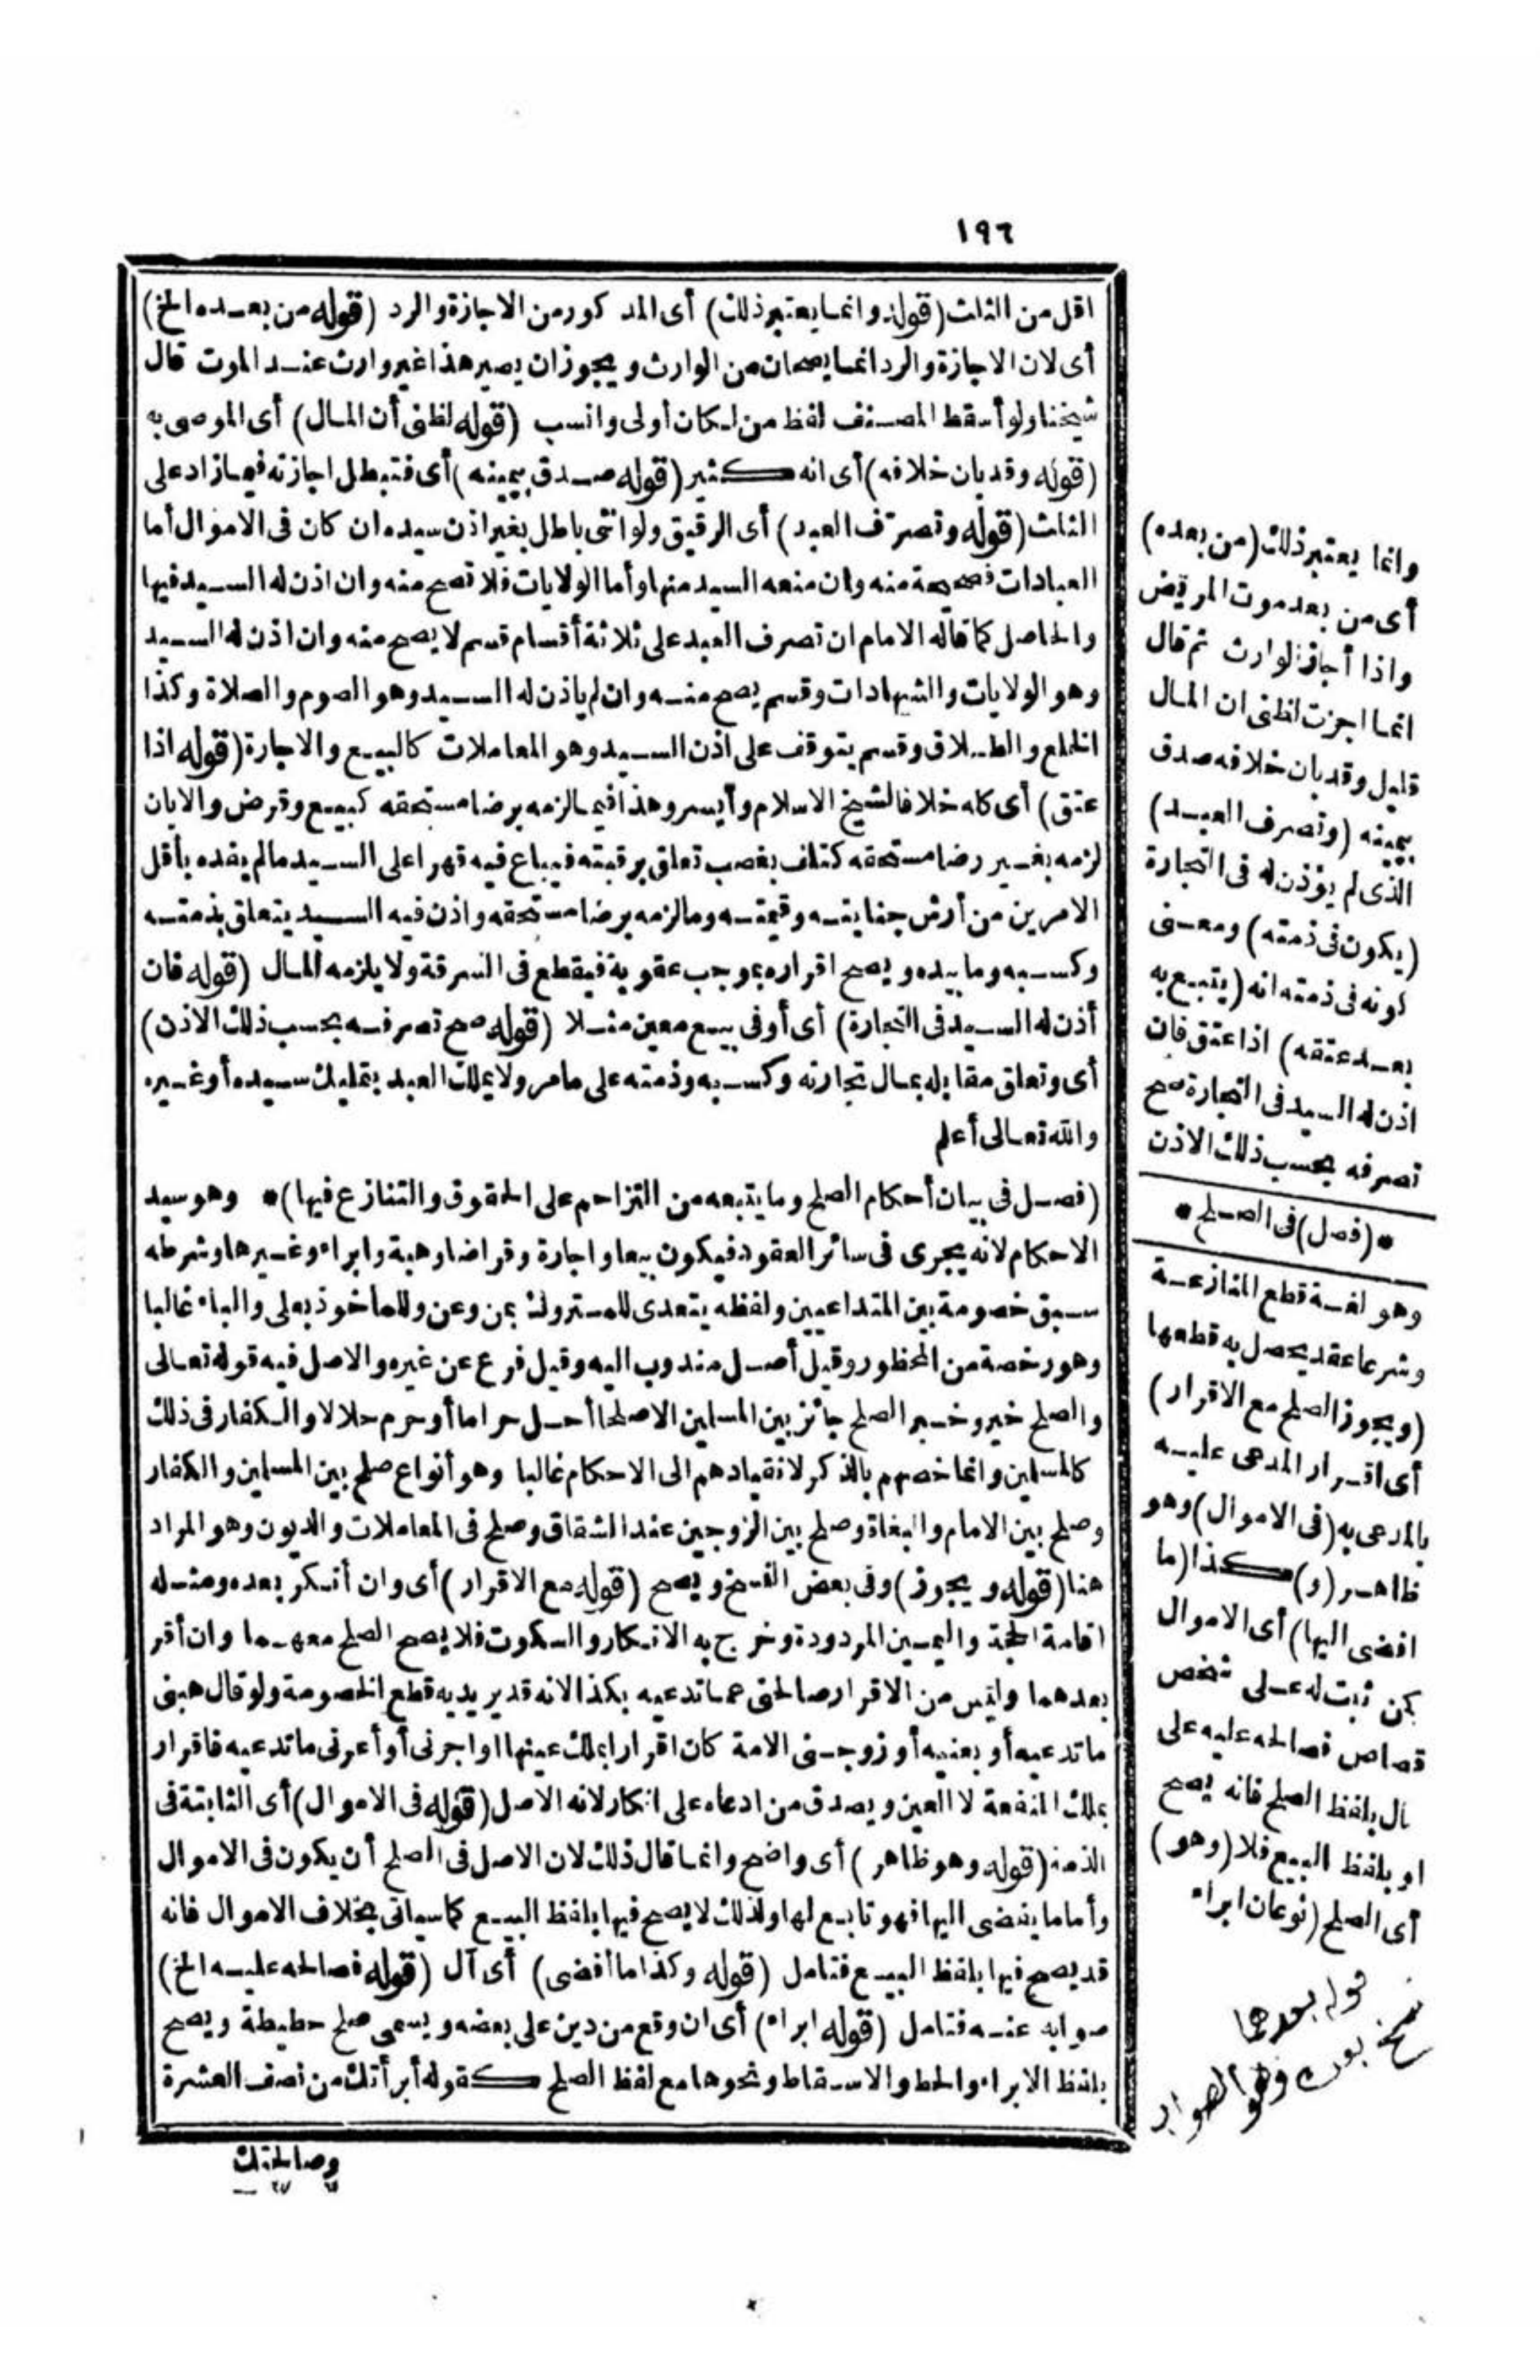 ١٩٦
اقل من الثلث (قوله وانما يعتبر ذلك) أى المذكور من الاجازة والرد (قوله من بعده الخ)
أى لان الاجازة والرد انما يصحان من الوارث ويجوز ان يصير هذا غير وارث عند الموت قال
شيخنا ولو أسقط المصنف لفظ من لكان أولى وانسب (قوله لظنى أن المال) أى الموصى به
(قوله وقد بان خلافه) أى انه كثير (قوله صدق بيمينه) أى فتبطل اجازته فيما زاد على
الثلث (قوله وتصرف العبد) أى الرقيق ولو انثى باطل بغير اذن سيده ان كان فى الاموال أما
العبادات فصحيحة منه وان منعه السيد منها وأما الولايات فلا تصح منه وان اذن له السيد فيها
والحاصل كما قاله الامام ان تصرف العبد على ثلاثة أقسام قسم لا يصح منه وان اذن له السيد
وهو الولايات والشهادات وقسم يصح منه وان لم ياذن له السيد وهو الصوم والصلاة وكذا
الخلع والطلاق وقسم يتوقف على اذن السيد وهو المعاملات كالبيع والاجارة (قوله اذا
عتق) أى كله خلافا لشيخ الاسلام وأيسر وهذا فيما لزمه برضا مستحقه كبيع وقرض والا بان
لزمه بغير رضا مستحقه كتلف بغصب تعلق برقبته فيباع فيه قهرا على السيد مالم يفده بأقل
الامرين من أرش جنايته وقيمته وما لزمه برضا مستحقه واذن فيه السيد يتعلق بذمته
وكسبه وما بيده ويصح اقراره بموجب عقوبة فيقطع فى السرقة ولا يلزمه المال (قوله فان
أذن له السيد فى التجارة) أى أو فى بيع معين مثلا (قوله صح تصرفه بحسب ذلك الاذن)
أى وتعلق مقابله بمال تجارته وكسبه وذمته على ما مر ولا يملك العبد بتمليك سيده أو غيره
والله تعالى أعلم
(فصل فى بيان أحكام الصلح وما يتبعه من التزاحم على الحقوق والتنازع فيها)* وهو سيد
الاحكام لانه يجرى فى سائر العقود فيكون بيعا واجارة وقراضا وهبة وابراء وغيرها وشرطه
سبق خصومة بين المتداعيين ولفظه يتعدى للمتروك بمن وعن وللمأخوذ بعلى والباء غالبا
وهو رخصة من المحظور وقيل أصل مندوب اليه وقيل فرع عن غيره والاصل فيه قوله تعالى
والصلح خير وخبر الصلح جائز بين المسلمين الا صلحا أحل حراما أو حرم حلالا والكفار فى ذلك
كالمسلمين وانما خصهم بالذكر لانقيادهم الى الاحكام غالبا وهو أنواع صلح بين المسلمين والكفار
وصلح بين الامام والبغاة وصلح بين الزوجين عند الشقاق وصلح فى المعاملات والديون وهو المراد
هنا (قوله ويجوز) وفى بعض النسخ ويصح (قوله مع الاقرار) أى وان أنكر بعده ومثله
اقامة الحجة واليمين المردودة وخرج به الانكار والسكوت فلا يصح الصلح معهما وان أقر
بعدهما وليس من الاقرار صالحنى عما تدعيه بكذا لانه قد يريد به قطع الخصومة ولو قال هبنى
ما تدعيه أو بعنيه أو زوجنى الامة كان اقرارا بملك عينها او اجرنى أو أعرنى ما تدعيه فاقرار
بملك المنفعة لا العين ويصدق من ادعاه على انكار لانه الاصل (قوله فى الاموال) أى الثابتة فى
الذمة (قوله وهو ظاهر) أى واضح وانما قال ذلك لان الاصل فى الصلح أن يكون فى الاموال
وأما ما يفضى اليها فهو تابع لها ولذلك لا يصح فيها بلفظ البيع كما سيأتى بخلاف الاموال فانه
قد يصح فيها بلفظ البيع فتامل (قوله وكذا ما أفضى) أى آل (قوله فصالحه عليه الخ)
صوابه عنه فتامل (قوله ابراء) أى ان وقع من دين على بعضه ويسمى صلح حطيطة ويصح
بلفظ الابراء والحط والاسقاط ونحوها مع لفظ الصلح كقوله أبرأتك من نصف العشرة
وصالحتك
وانما يعتبر ذلك (من بعده)
أى من بعد موت المريض
واذا أجاز الوارث ثم قال
انما اجزت لظنى ان المال
قليل وقد بان خلافه صدق
بيمينه (وتصرف العبد)
الذى لم يؤذن له فى التجارة
(يكون فى ذمته) ومعنى
كونه فى ذمته انه (يتبع به
بعد عتقه) اذا عتق فان
اذن له السيد فى التجارة صح
تصرفه بحسب ذلك الاذن
*(فصل) فى الصلح*
وهو لغة قطع المنازعة
وشرعا عقد يحصل به قطعها
(ويجوز الصلح مع الاقرار)
أى اقرار المدعى عليه
بالمدعى به (فى الاموال) وهو
ظاهر (و) كذا (ما
افضى اليها) أى الاموال
كمن ثبت له على شخص
قصاص فصالحه عليه على
مال بلفظ الصلح فانه يصح
او بلفظ البيع فلا (وهو)
أى الصلح (نوعان ابراء
قوله بعدهما
نسخ بعده وهو الصواب